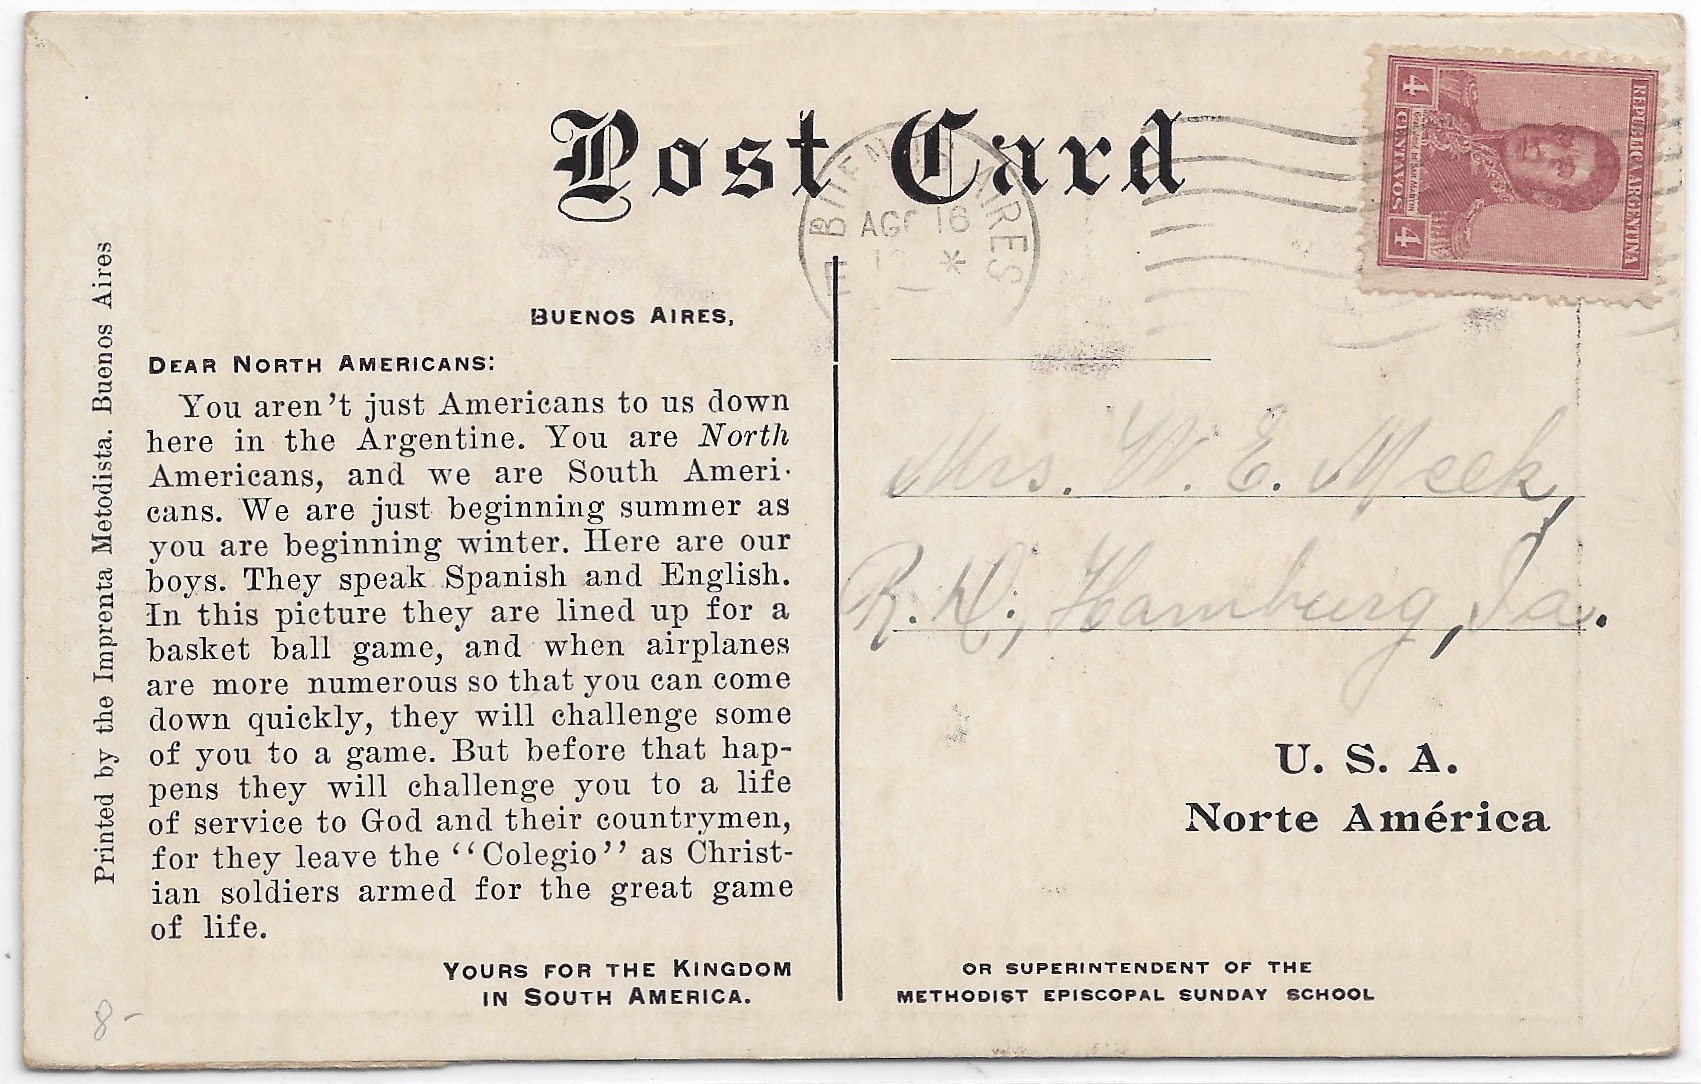 Post Card
BUENOS AIRES
AGO 16
REPUBLICA ARGENTINA
4 CENTAVOS 4
Printed by the Imprenta Metodista. Buenos Aires
BUENOS AIRES,
DEAR NORTH AMERICANS:
You aren't just Americans to us down
here in the Argentine. You are North
Americans, and we are South Ameri-
cans. We are just beginning summer as
you are beginning winter. Here are our
boys. They speak Spanish and English.
In this picture they are lined up for a
basket ball game, and when airplanes
are more numerous so that you can come
down quickly, they will challenge some
of you to a game. But before that hap-
pens they will challenge you to a life
of service to God and their countrymen,
for they leave the "Colegio" as Christ-
ian soldiers armed for the great game
of life.
YOURS FOR THE KINGDOM
IN SOUTH AMERICA.
8-
Mrs. W. E. Meek,
R.D., Hamburg, Ia.
U. S. A.
Norte América
OR SUPERINTENDENT OF THE
METHODIST EPISCOPAL SUNDAY SCHOOL